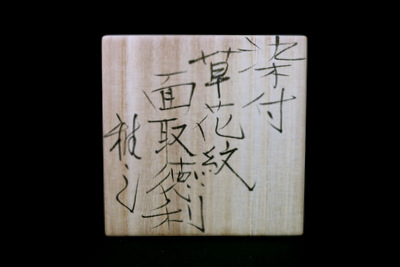 染付
草花紋
面取徳利